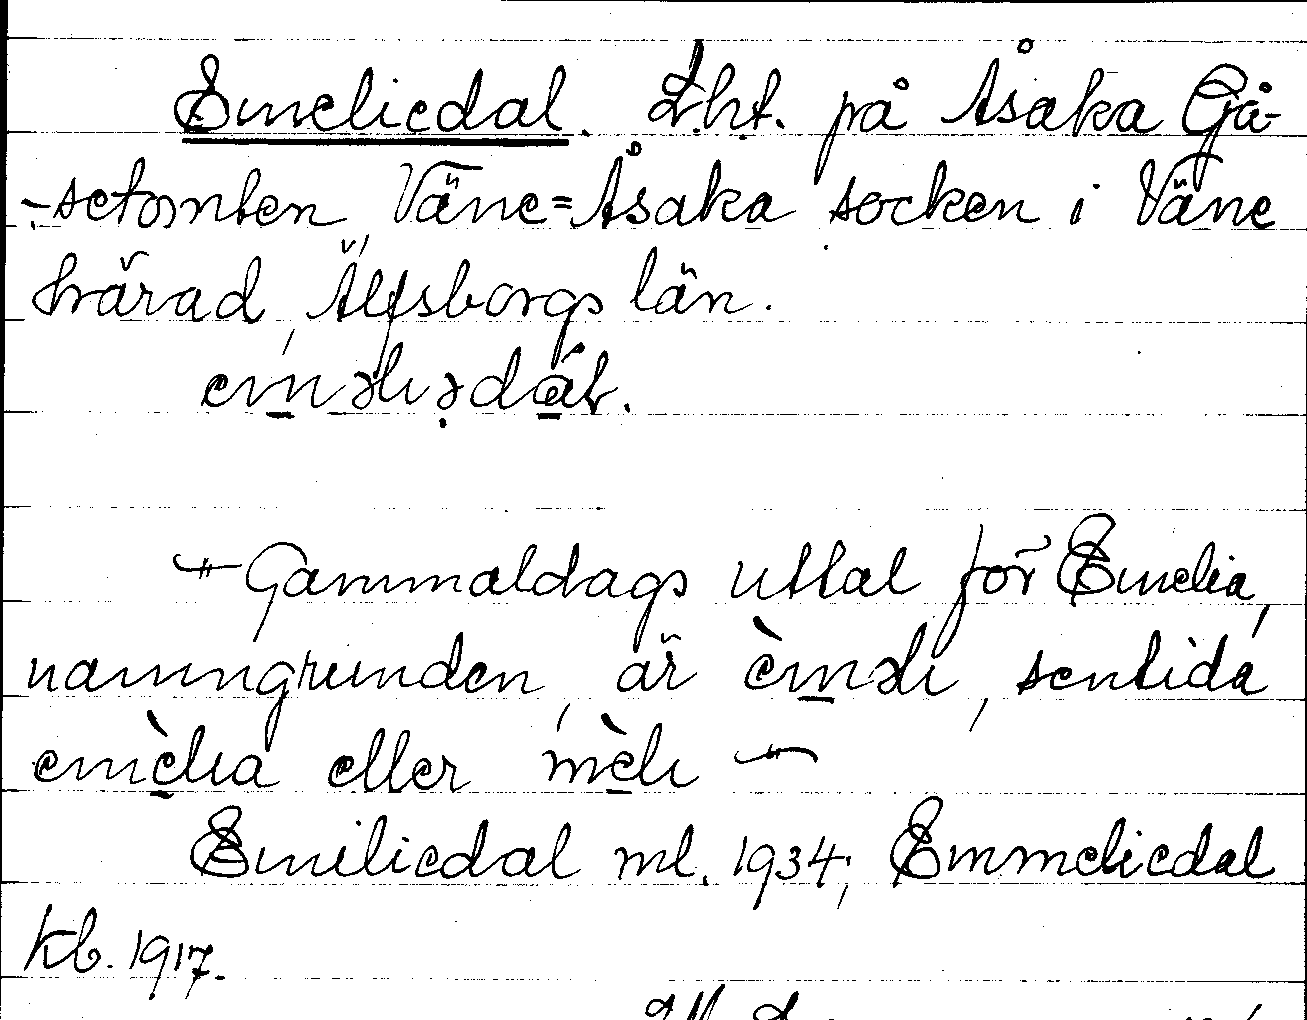 Emeliedal. Lht. på Åsaka Gå-
-setomten, Väne=Åsaka socken i Väne
härad, Älfsborgs län.
em̲əlıəda̲l.
Gammaldags uttal för Emelia,
namngrunden, är èm̲əlı, sentida
emè̲lıa eller mè̲lı
Emiliedal ml. 1934; Emmeliedal
kb. 1917.